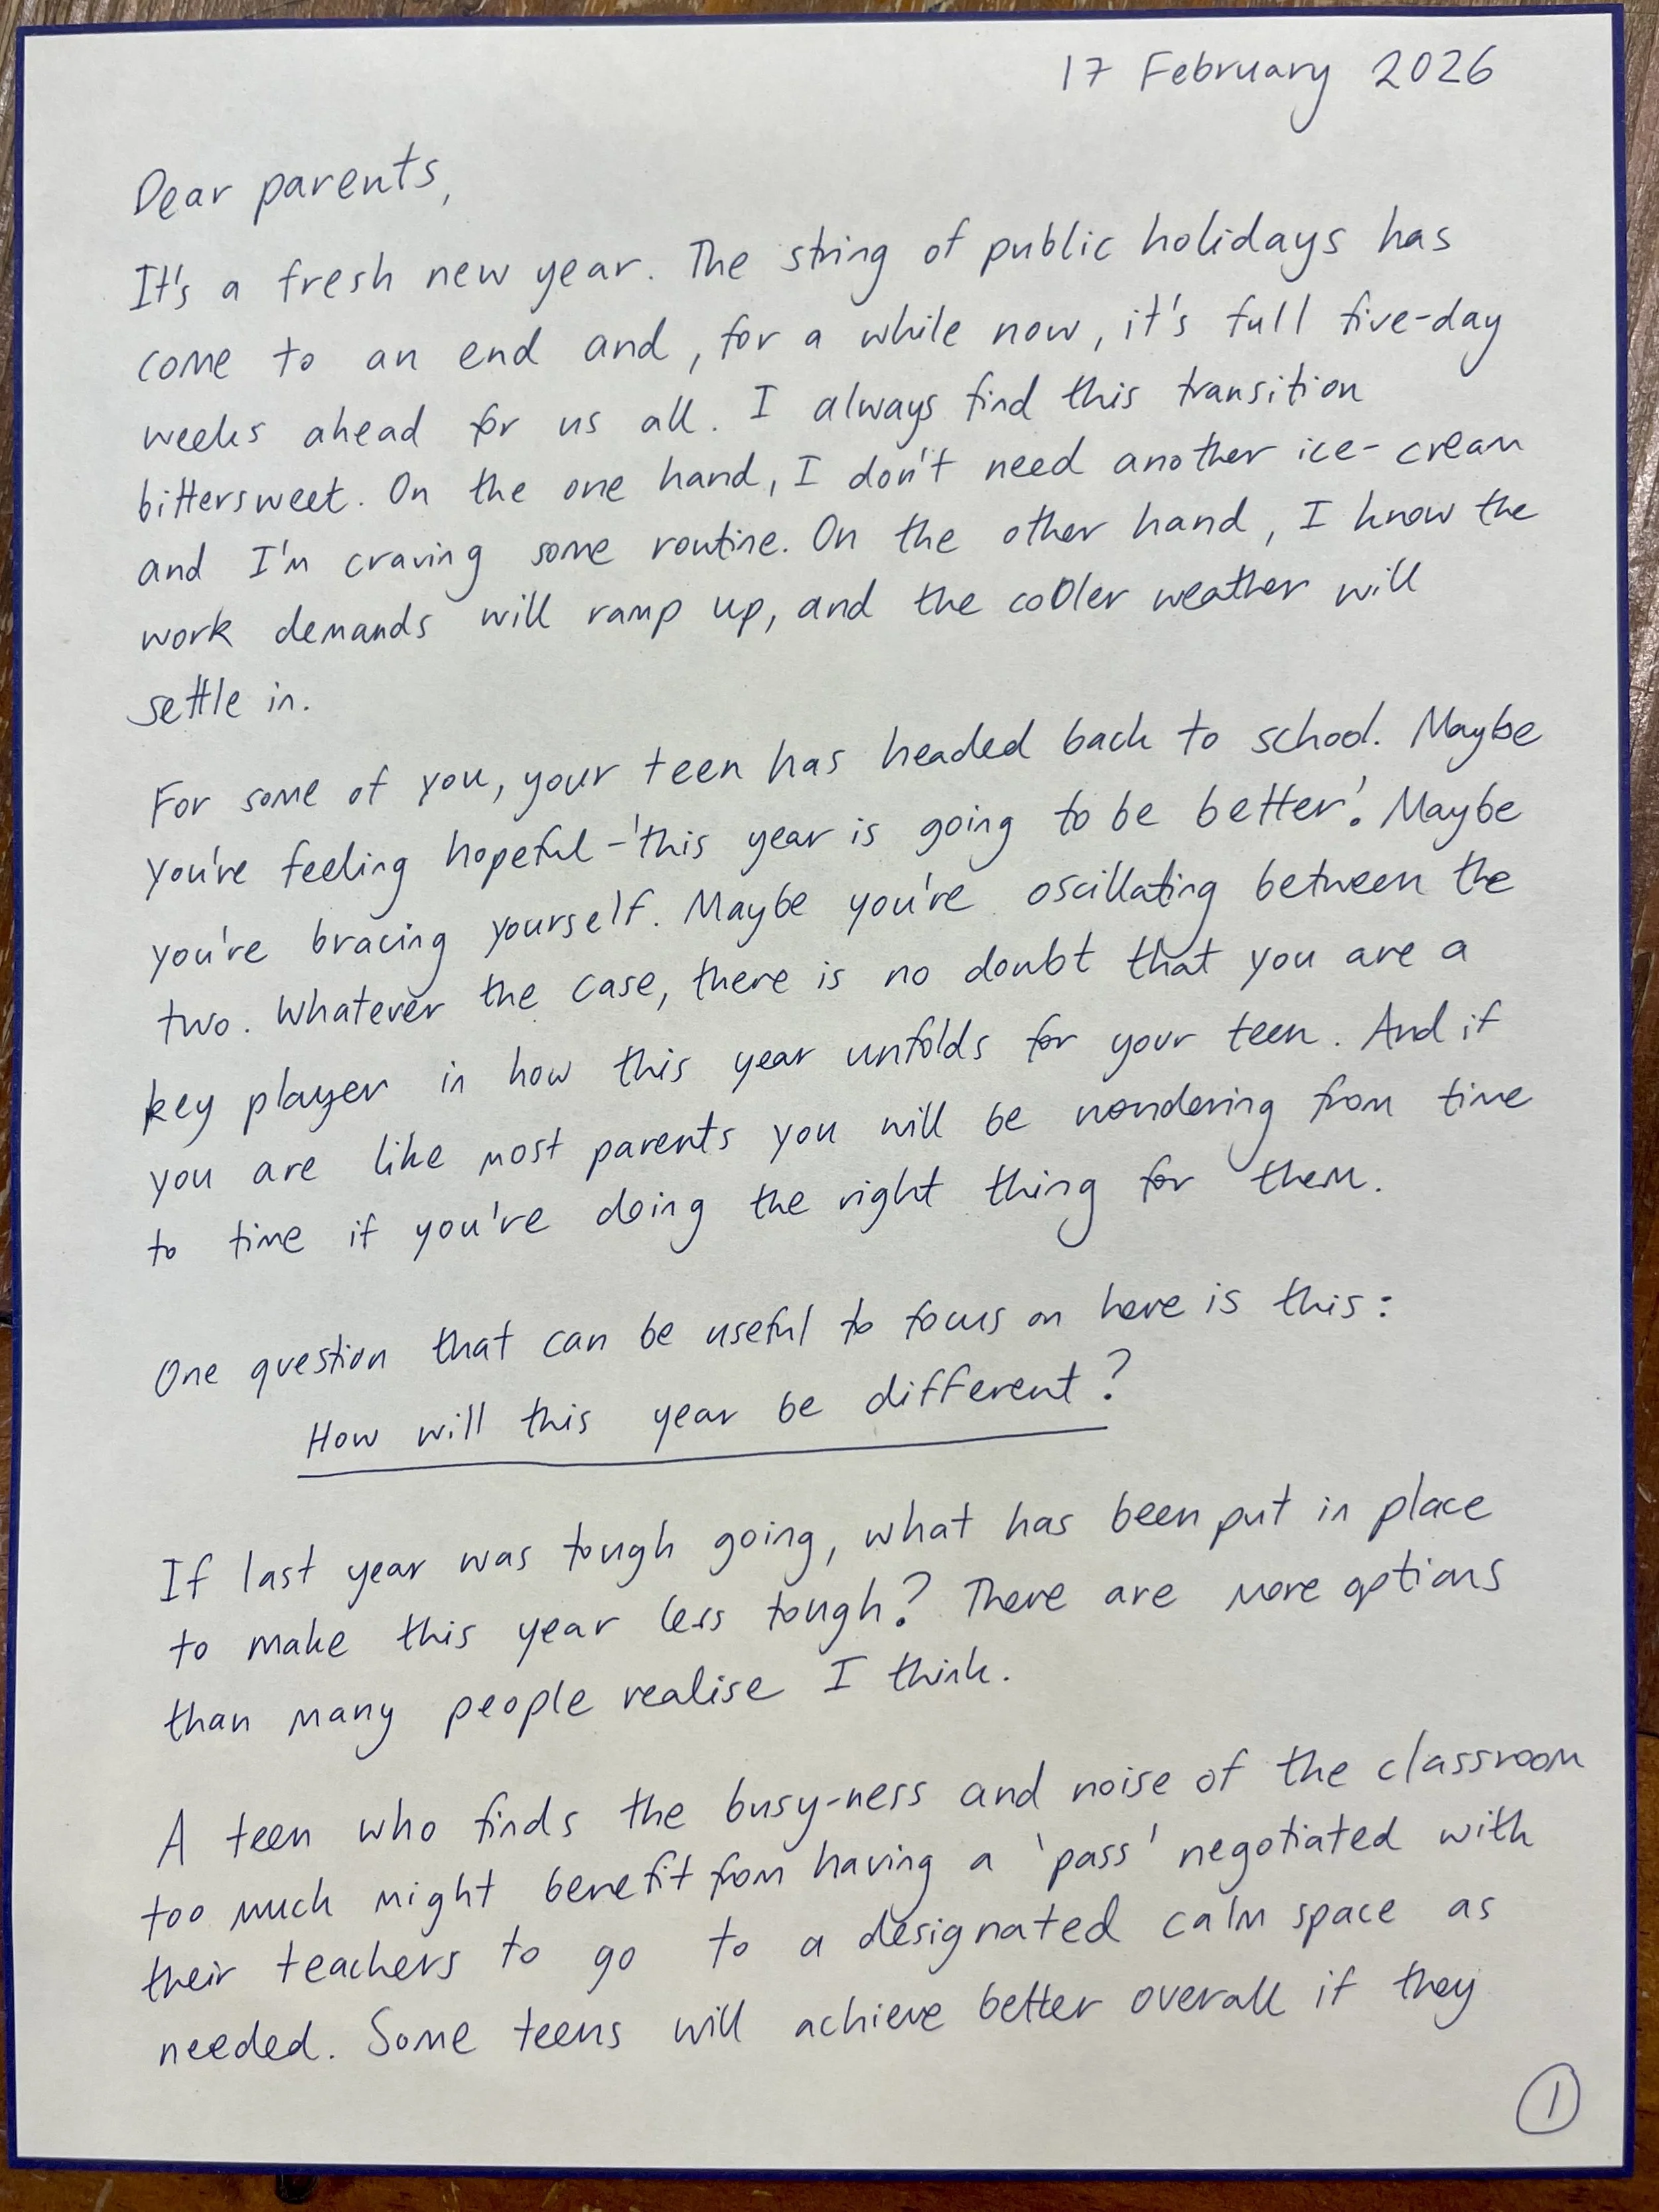 17 February 2026
Dear parents,
It's a fresh new year. The string of public holidays has
come to an end and, for a while now, it's full five-day
weeks ahead for us all. I always find this transition
bittersweet. On the one hand, I don't need another ice-cream
and I'm craving some routine. On the other hand, I know the
work demands will ramp up, and the cooler weather will
settle in.
For some of you, your teen has headed back to school. Maybe
you're feeling hopeful - 'this year is going to be better'. Maybe
you're bracing yourself. Maybe you're oscillating between the
two. Whatever the case, there is no doubt that you are a
key player in how this year unfolds for your teen. And if
you are like most parents you will be wondering from time
to time if you're doing the right thing for them.
One question that can be useful to focus on here is this:
How will this year be different?
If last year was tough going, what has been put in place
to make this year less tough? There are more options
than many people realise I think.
A teen who finds the busy-ness and noise of the classroom
too much might benefit from having a 'pass' negotiated with
their teachers to go to a designated calm space as
needed. Some teens will achieve better overall if they
1